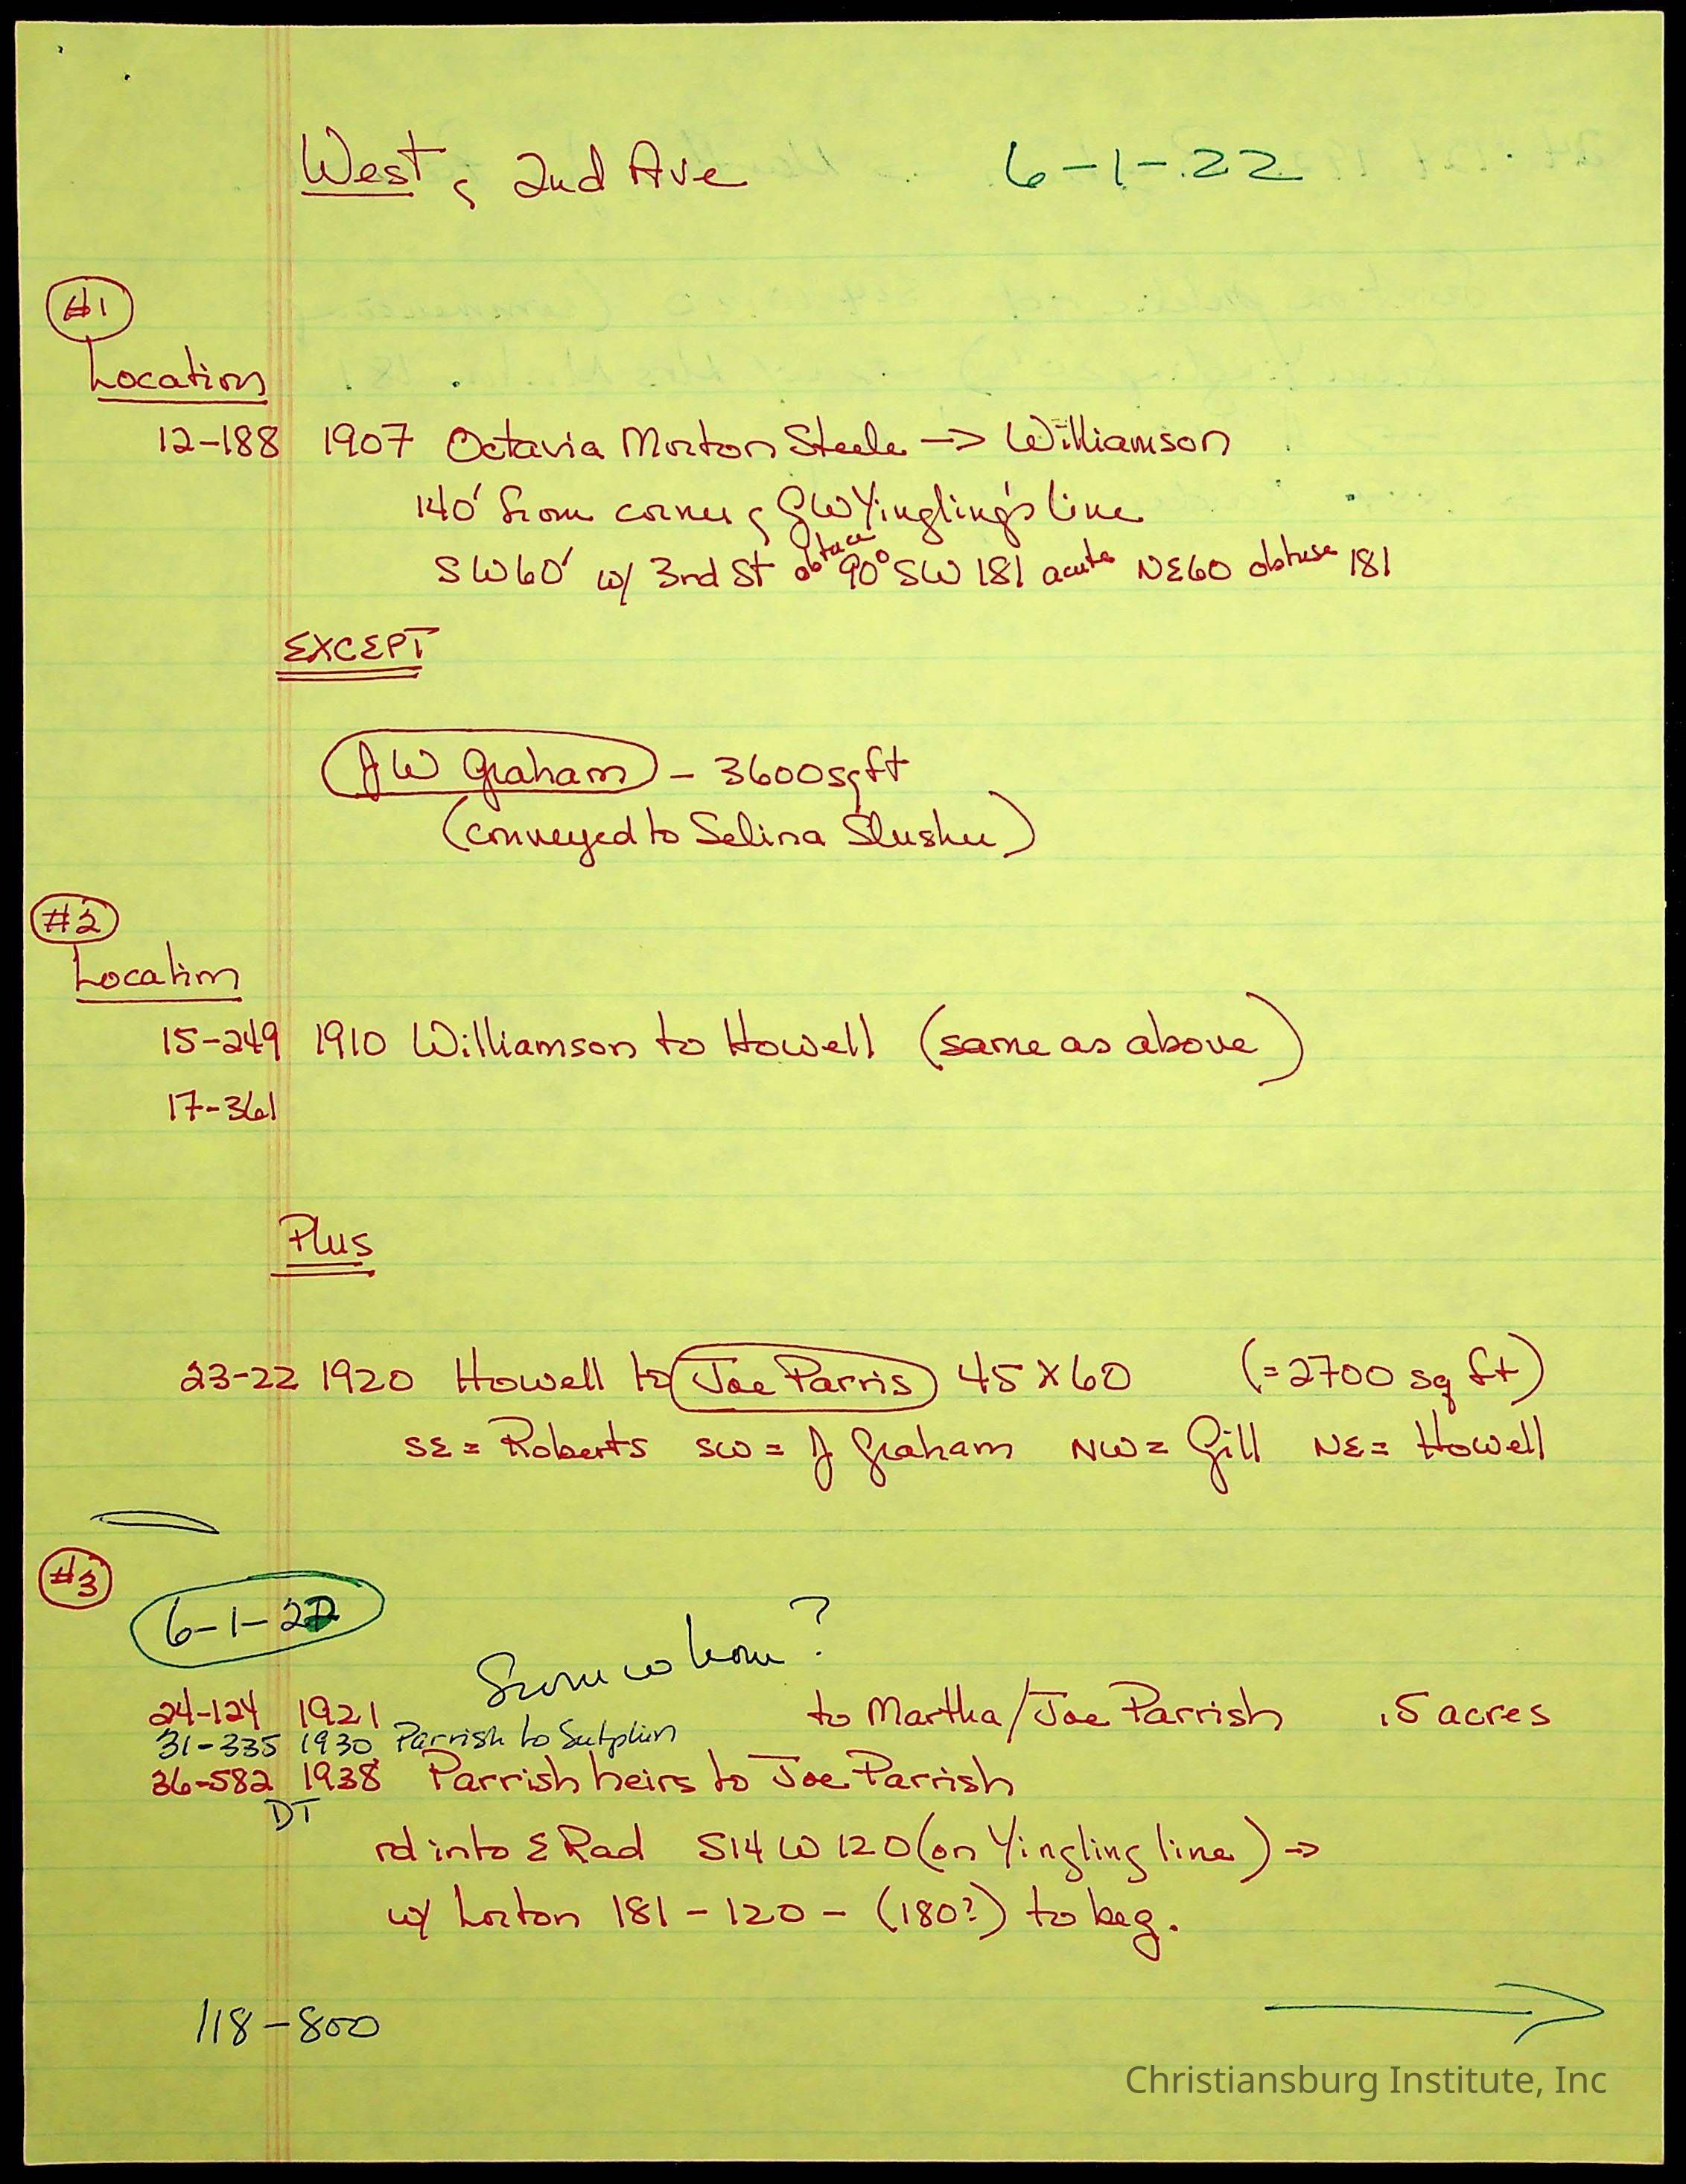 West, 2nd Ave 6-1-22
#1
Location
12-188 1907 Octavia Morton Steele -> Williamson
140' from corner, GW Yingling's line
obtuse
SW60' w/ 3rd St 90° SW 181 acute NE60 obtuse 181
EXCEPT
JW Graham - 3600 sq ft
(conveyed to Selina Slusher)
#2
Location
15-249 1910 Williamson to Howell (same as above)
17-361
Plus
23-22 1920 Howell to Joe Parris 45 x 60 (=2700 sq ft)
SE = Roberts SW = J Graham NW = Gill NE = Howell
#3
6-1-22
From whom?
24-124 1921 to Martha/Joe Parrish .5 acres
31-335 1930 Parrish to Sutphin
36-582 1938 Parrish heirs to Joe Parrish
DT
rd into E Rad S14 W 120 (on Yingling line) ->
w/ Lorton 181 - 120 - (180?) to beg.
118-800
Christiansburg Institute, Inc